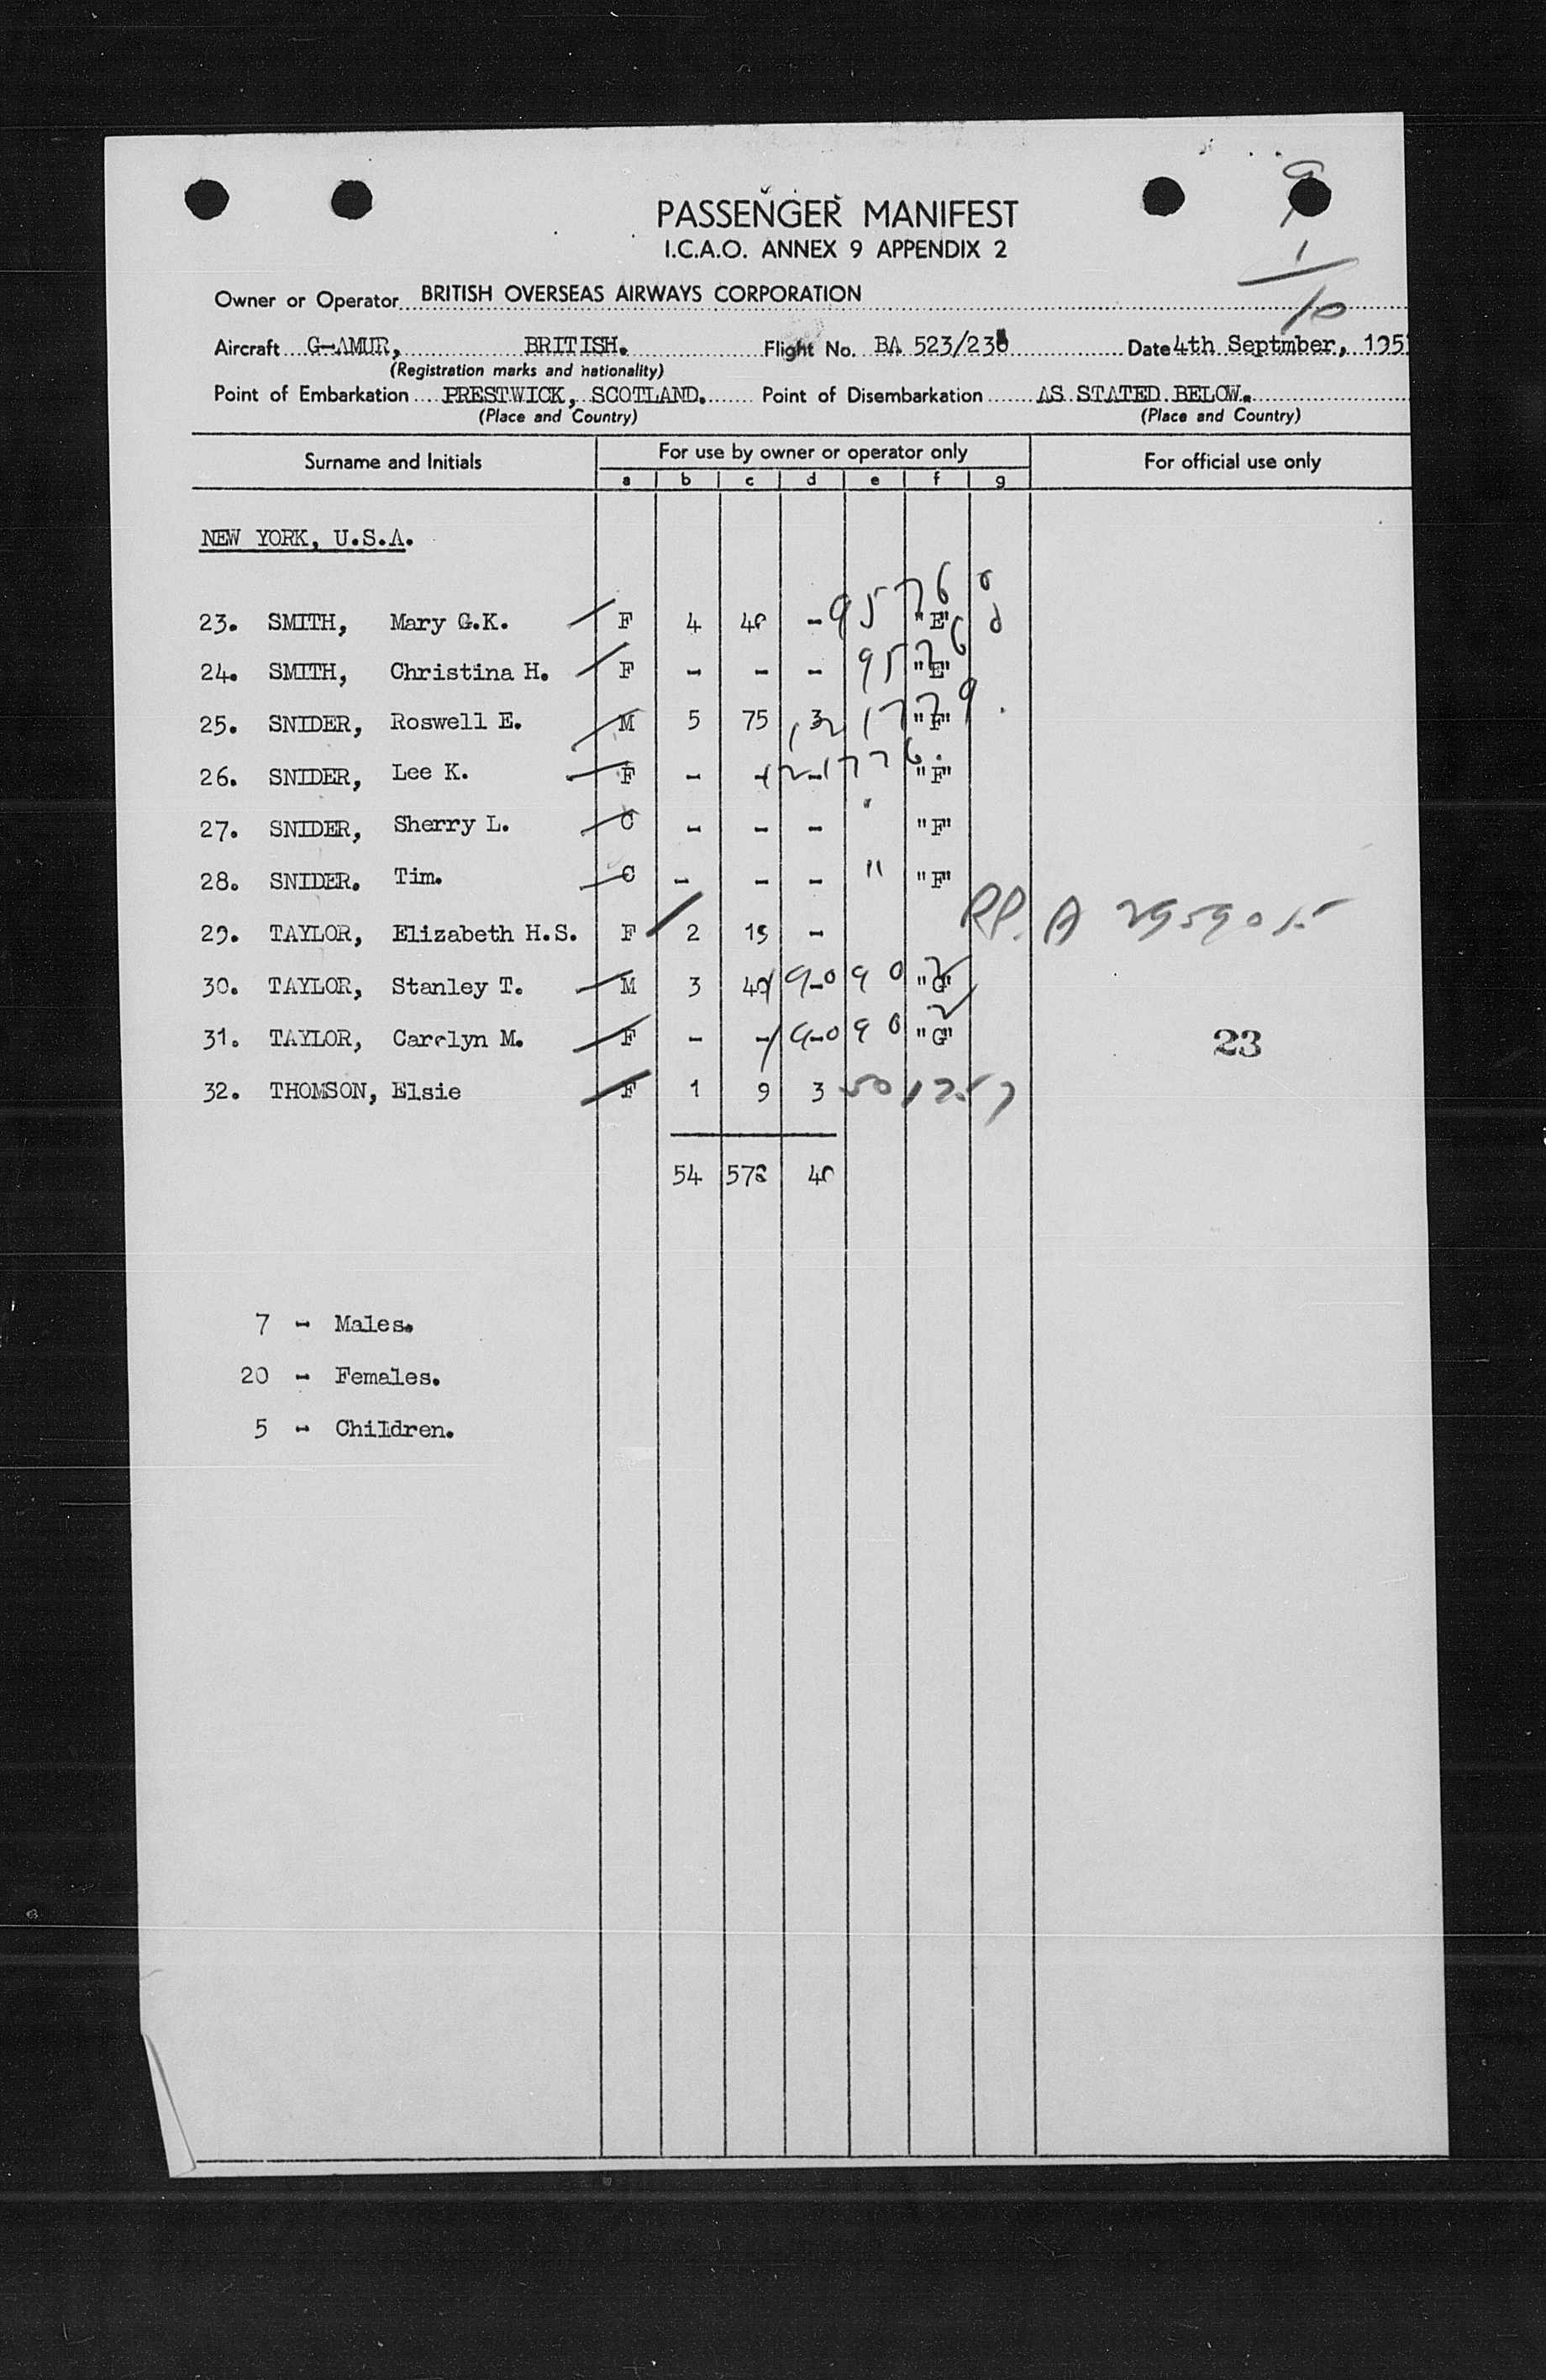 PASSENGER MANIFEST
I.C.A.O. ANNEX 9 APPENDIX 2
Owner or Operator BRITISH OVERSEAS AIRWAYS CORPORATION
Aircraft G-AMUR, BRITISH. Flight No. BA 523/238 Date 4th Septmber, 195
(Registration marks and nationality)
Point of Embarkation PRESTWICK, SCOTLAND. Point of Disembarkation AS STATED BELOW.
(Place and Country) (Place and Country)
Surname and Initials For use by owner or operator only For official use only
a b c d e f g
NEW YORK, U.S.A.
23. SMITH, Mary G.K. F 4 40 - 9576 "E"
24. SMITH, Christina H. F - - - 9576 "E"
25. SNIDER, Roswell E. M 5 75 3 "F"
26. SNIDER, Lee K. F - - - "F"
27. SNIDER, Sherry L. C - - - "F"
28. SNIDER. Tim. C - - - " "F"
29. TAYLOR, Elizabeth H.S. F 2 19 - PP. A 295901
30. TAYLOR, Stanley T. M 3 40 - 9090 "G"
31. TAYLOR, Carolyn M. F - - - 9090 "G" 23
32. THOMSON, Elsie F 1 9 3
54 578 40
7 - Males.
20 - Females.
5 - Children.